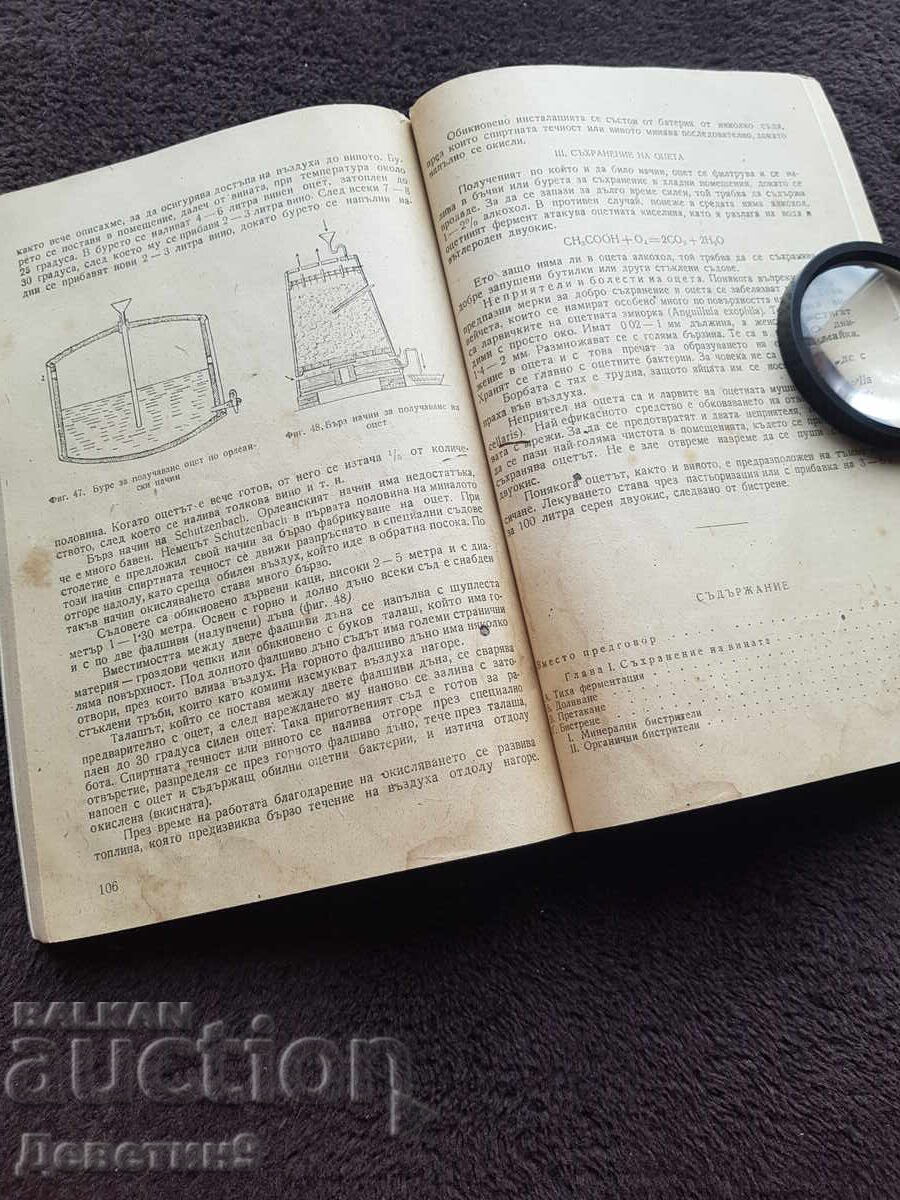 както вече описахме, за да осигурява достъпа на въздуха до виното. Бу-
рето се поставя в помещение, далеч от вината, при температура около
25 градуса. В бурето се наливат 4 — 6 литра винен оцет, затоплен до
30 градуса, след което му се прибавят 2 — 3 литра вино. След всеки 7 — 8
дни се прибавят нови 2 — 3 литра вино, докато бурето се напълни на-
Фиг. 47. Буре за получаване оцет по орлеан-
ски начин
Фиг. 48. Бърз начин за получаване на
оцет
половина. Когато оцетът е вече готов, от него се източа от количе-
ството, след което се налива толкова вино и т. н.
Бърз начин на Schutzenbach. Орлеанският начин има недостатъка,
че е много бавен. Немецът Schutzenbach в първата половина на миналото
столетие е предложил свой начин за бързо фабрикуване на оцет. При
този начин спиртната течност се движи разпръснато в специални съдове
отгоре надолу, като среща обилен въздух, който иде в обратна посока. По
такъв начин окисляването става много бързо.
Съдовете са обикновено дървени каци, високи 2 — 5 метра и с диа-
метър 1 — 1·30 метра. Освен с горно и долно дъно всеки съд е снабден
и с по две фалшиви (надупчени) дъна (фиг. 48)
Вместимостта между двете фалшиви дъна се изпълва с шуплеста
материя — гроздови чепки или обикновено с буков талаш, който има го-
ляма повърхност. Под долното фалшиво дъно съдът има големи странични
отвори, през които влиза въздух. На горното фалшиво дъно има няколко
стъклени тръби, които като комини изсмукват въздуха нагоре.
Талашът, който се поставя между двете фалшиви дъна, се сварява
предварително с оцет, а след нареждането му наново се залива с зато-
плен до 30 градуса силен оцет. Така приготвеният съд е готов за ра-
бота. Спиртната течност или виното се налива отгоре през специално
отвърстие, разпределя се през горното фалшиво дъно, тече през талаша,
напоен с оцет и съдържащ обилни оцетни бактерии, и изтича отдолу
окислена (вкисната).
През време на работата благодарение на окисляването се развива
топлина, която предизвиква бързо течение на въздуха отдолу нагоре.
106
Обикновено инсталацията се състои от батерия от няколко съда,
през които спиртната течност или виното минава последователно, докато
напълно се окисли.
III. СЪХРАНЕНИЕ НА ОЦЕТА
Полученият по който и да било начин, оцет се филтрува и се на-
лива в бъчви или бурета за съхранение в хладни помещения, докато се
продаде. За да се запази за дълго време силен, той трябва да съдържа
1 — 2% алкохол. В противен случай, понеже в средата няма алкохол,
оцетният фермент атакува оцетната киселина, като я разлага на вода и
въглероден двуокис.
CH₃COOH+O₄=2CO₂+2H₂O
Ето защо няма ли в оцета алкохол, той трябва да се съхранява
добре запушени бутилки или други стъклени съдове.
Неприятели и болести на оцета. Понякога въпреки
предпазни мерки за добро съхранение в оцета се забелязват
вейчета, които се намират особено много по повърхността на
са ларвичките на оцетната змиорка (Anguillula exophila). Т
дими с просто око. Имат 0·02 — 1 мм дължина, а женс
1·4 — 2 мм. Размножават се с голяма бързина. Те са в
жение в оцета и с това пречат за образуването на
Хранят се главно с оцетните бактерии. За човека не са
Борбата с тях е трудна, защото яйцата им се нос
праха във въздуха.
Неприятел на оцета са и ларвите на оцетната муш
cellaris). Най ефикасното средство е обковаването на от
вата с мрежи. За да се предотвратят и двата неприятеля,
да се пази най-голяма чистота в помещенията, където се пр
съхранява оцетът. Не е зле отвреме навреме да се пуши
двуокис.
Понякога оцетът, както и виното, е предразположен на
сичане. Лекуването става чрез пастьоризация или с прибавка на 3
за 100 литра серен двуокис, следвано от бистрене.
СЪДЪРЖАНИЕ
Вместо предговор
Глава I. Съхранение на вината
А. Тиха ферментация
Б. Доливане
В. Претакане
Г. Бистрене
I. Минерални бистрители
II. Органични бистрители
BALKAN
auction
Деветин9